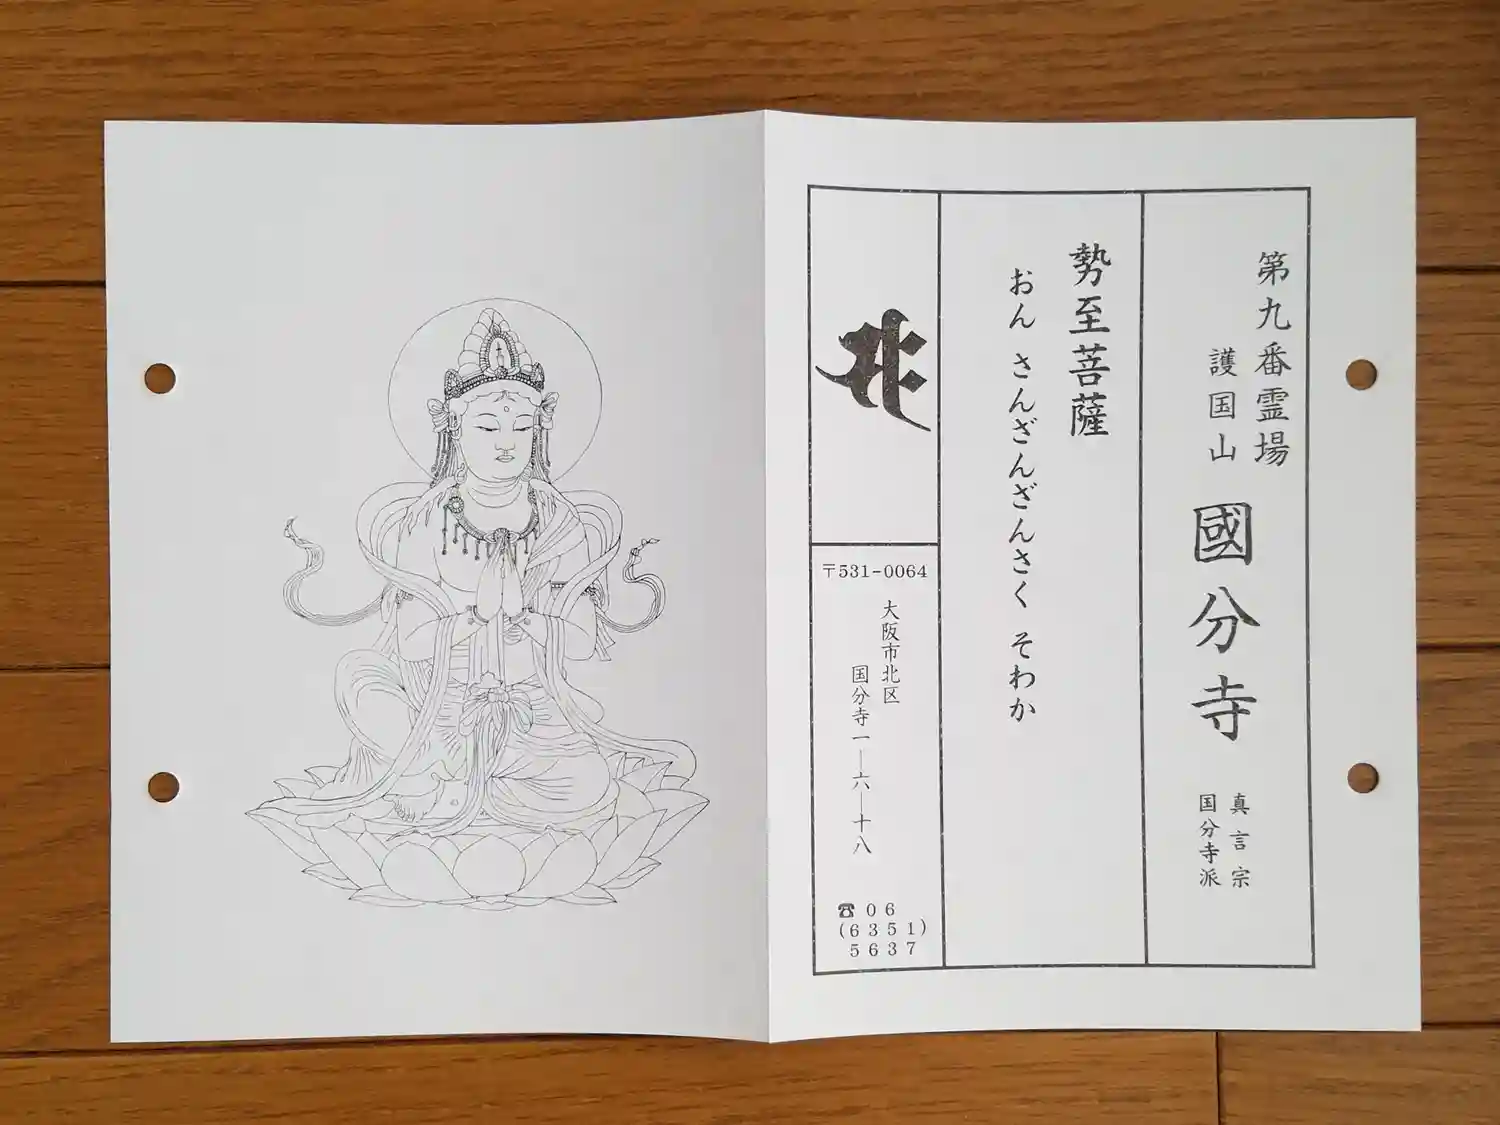 第九番霊場
護国山
國分寺
真言宗
国分寺派
勢至菩薩
おん さんざんざんさく そわか
𑖭𑖾
〒531-0064
大阪市北区
国分寺一―六―十八
☎06
(6351)
5637